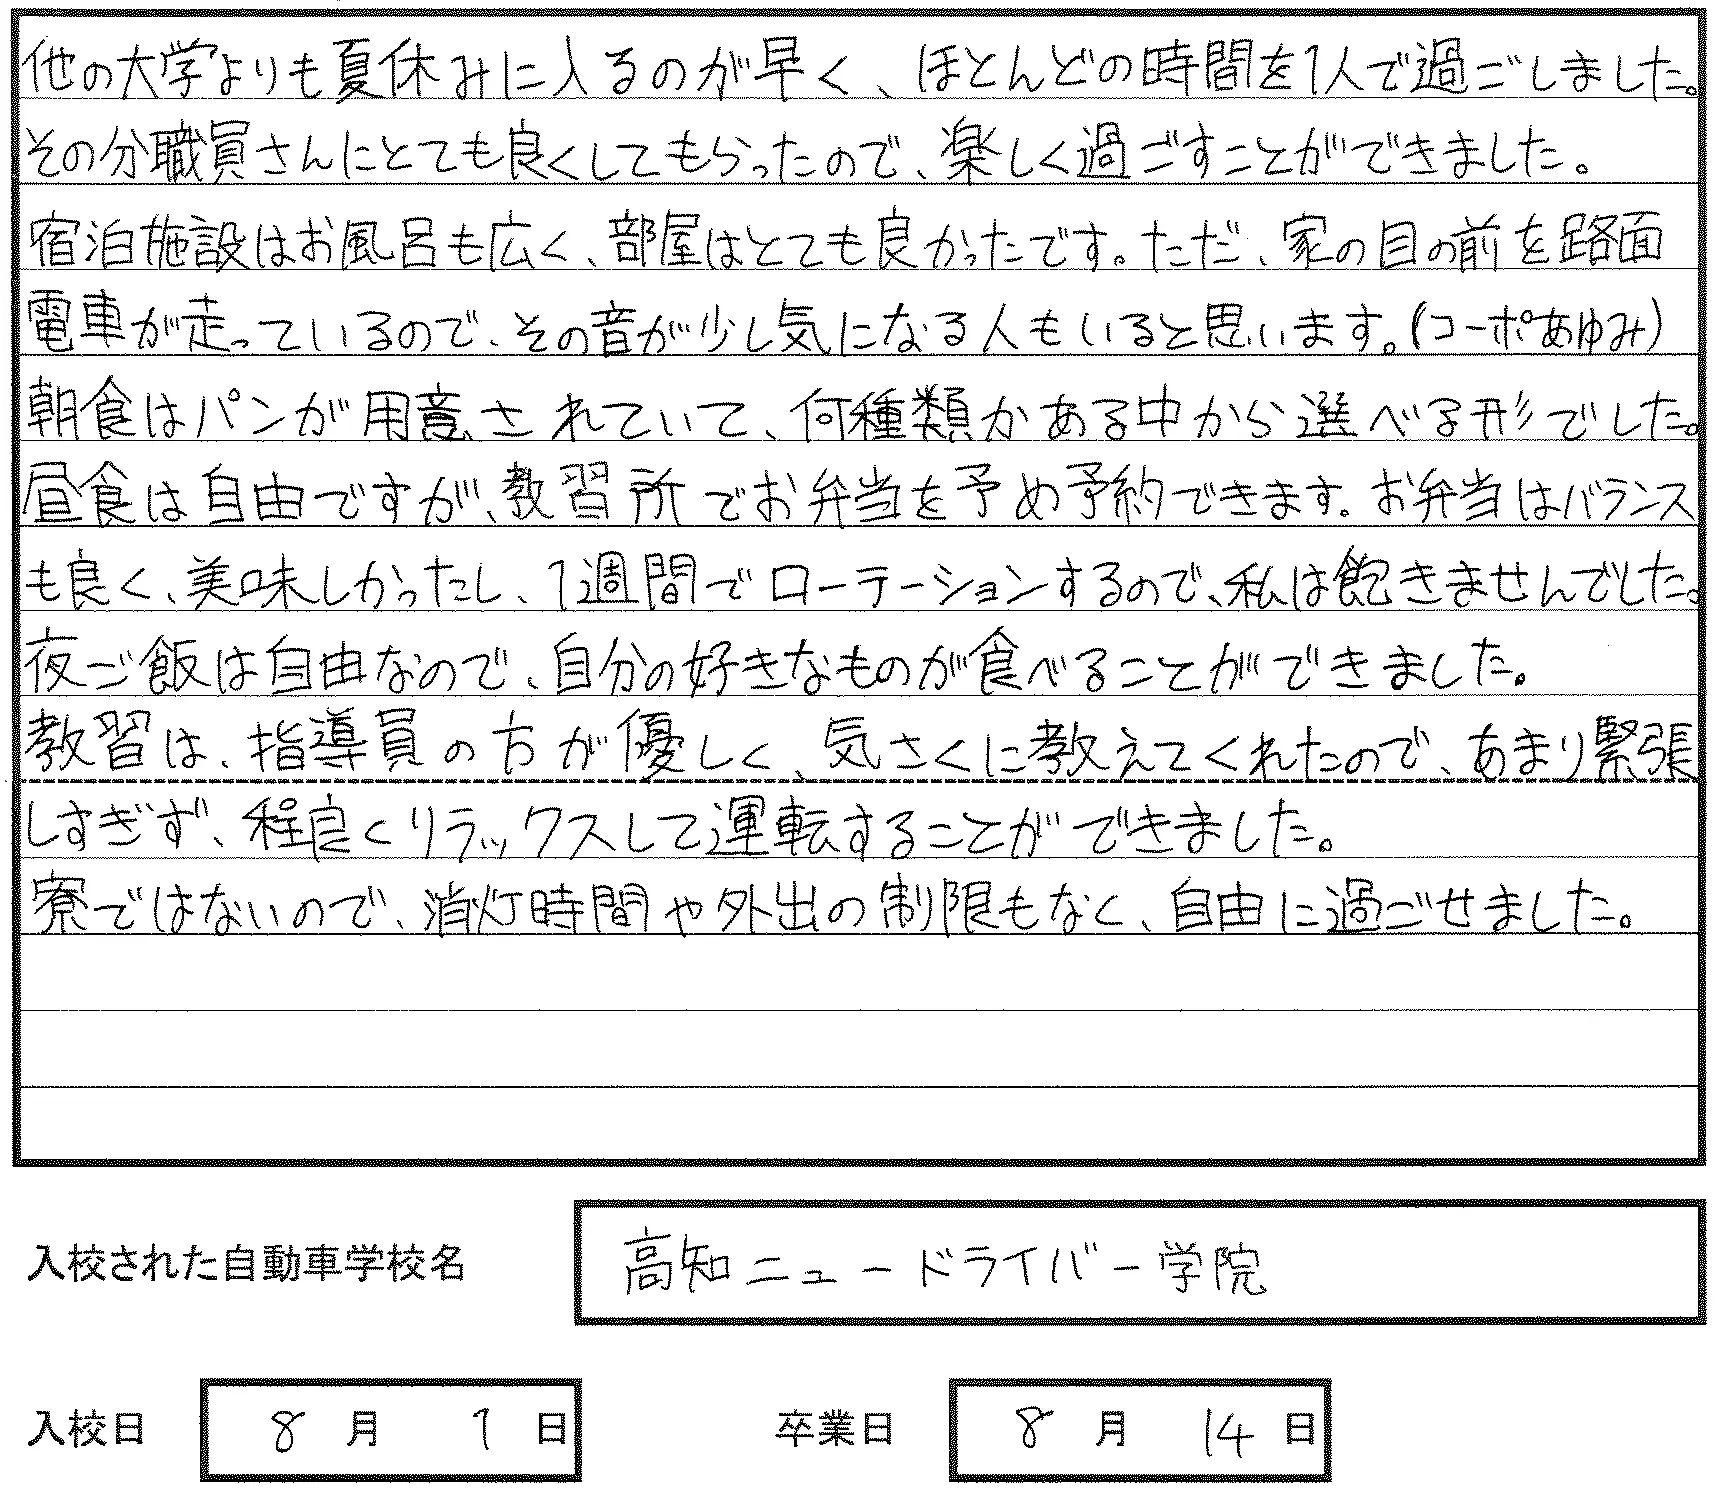 他の大学よりも夏休みに入るのが早く、ほとんどの時間を1人で過ごしました。
その分職員さんにとても良くしてもらったので、楽しく過ごすことができました。
宿泊施設はお風呂も広く、部屋はとても良かったです。ただ、家の目の前を路面
電車が走っているので、その音が少し気になる人もいると思います。(コーポあゆみ)
朝食はパンが用意されていて、何種類かある中から選べる形でした。
昼食は自由ですが、教習所でお弁当を予め予約できます。お弁当はバランス
も良く、美味しかったし、1週間でローテーションするので、私は飽きませんでした。
夜ご飯は自由なので、自分の好きなものが食べることができました。
教習は、指導員の方が優しく、気さくに教えてくれたので、あまり緊張
しすぎず、程良くリラックスして運転することができました。
寮ではないので、消灯時間や外出の制限もなく、自由に過ごせました。
入校された自動車学校名 高知ニュードライバー学院
入校日 8月1日 卒業日 8月14日